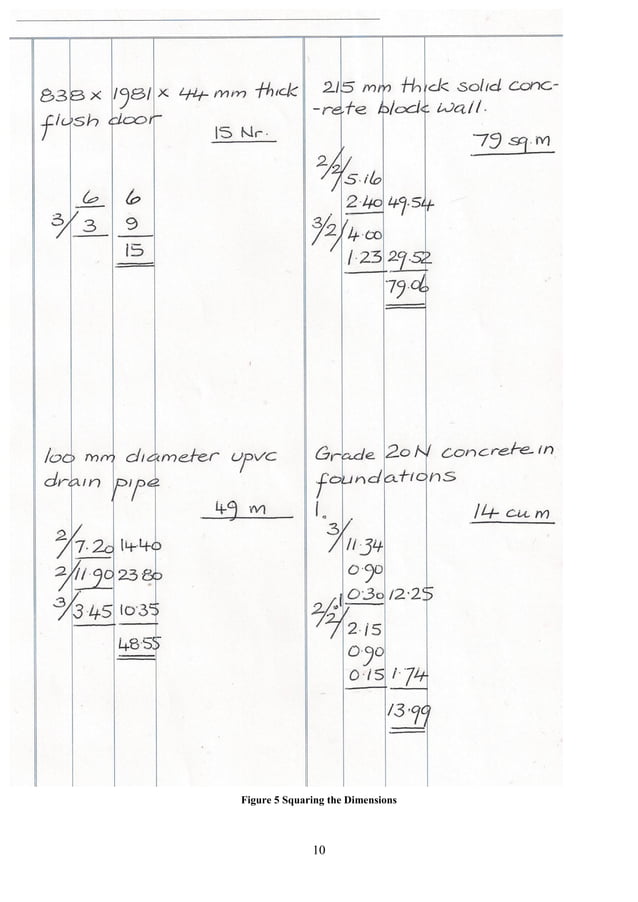 838 x 1981 x 44 mm thick
flush door
15 Nr.
6 6
3/ 3 9
15
215 mm thick solid conc-
-rete block wall.
79 sq.m
2/2/ 5.16
2.40 49.54
3/2/ 4.00
1.23 29.52
79.06
100 mm diameter upvc
drain pipe
49 m
2/ 7.20 14.40
2/ 11.90 23.80
3/ 3.45 10.35
48.55
Grade 20N concrete in
foundations
14 cu m
1.
3/ 11.34
0.90
0.30 12.25
2/.1/2/ 2.15
0.90
0.15 1.74
13.99
Figure 5 Squaring the Dimensions
10